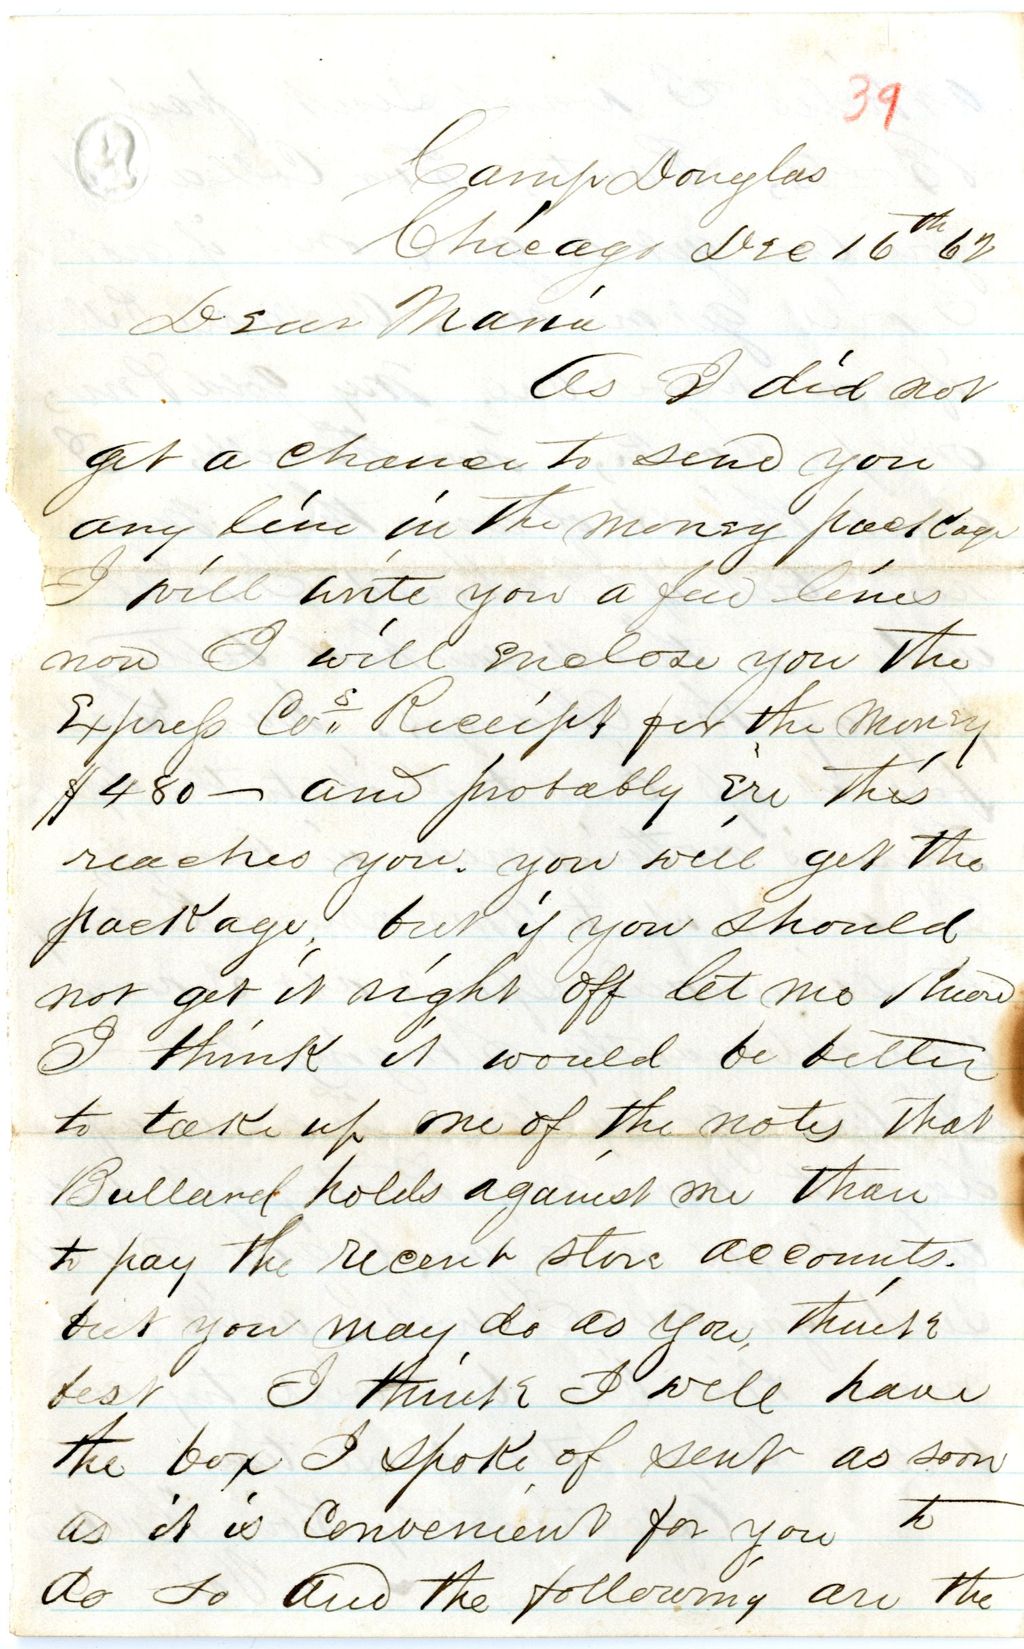 39
Camp Douglas
Chicago Dec 16th 62
Dear Maria
As I did not
get a chance to send you
any line in the money package
I will write you a few lines
now I will enclose you the
Express Cos Receipt for the money
$480 — and probably ere this
reaches you. you will get the
package, but if you should
not get it right off let me know
I think it would be better
to take up one of the notes that
Bullard holds against me than
to pay the recent store accounts.
but you may do as you think
best I think I will have
the box I spoke of sent as soon
as it is convenient for you to
do so and the following are the